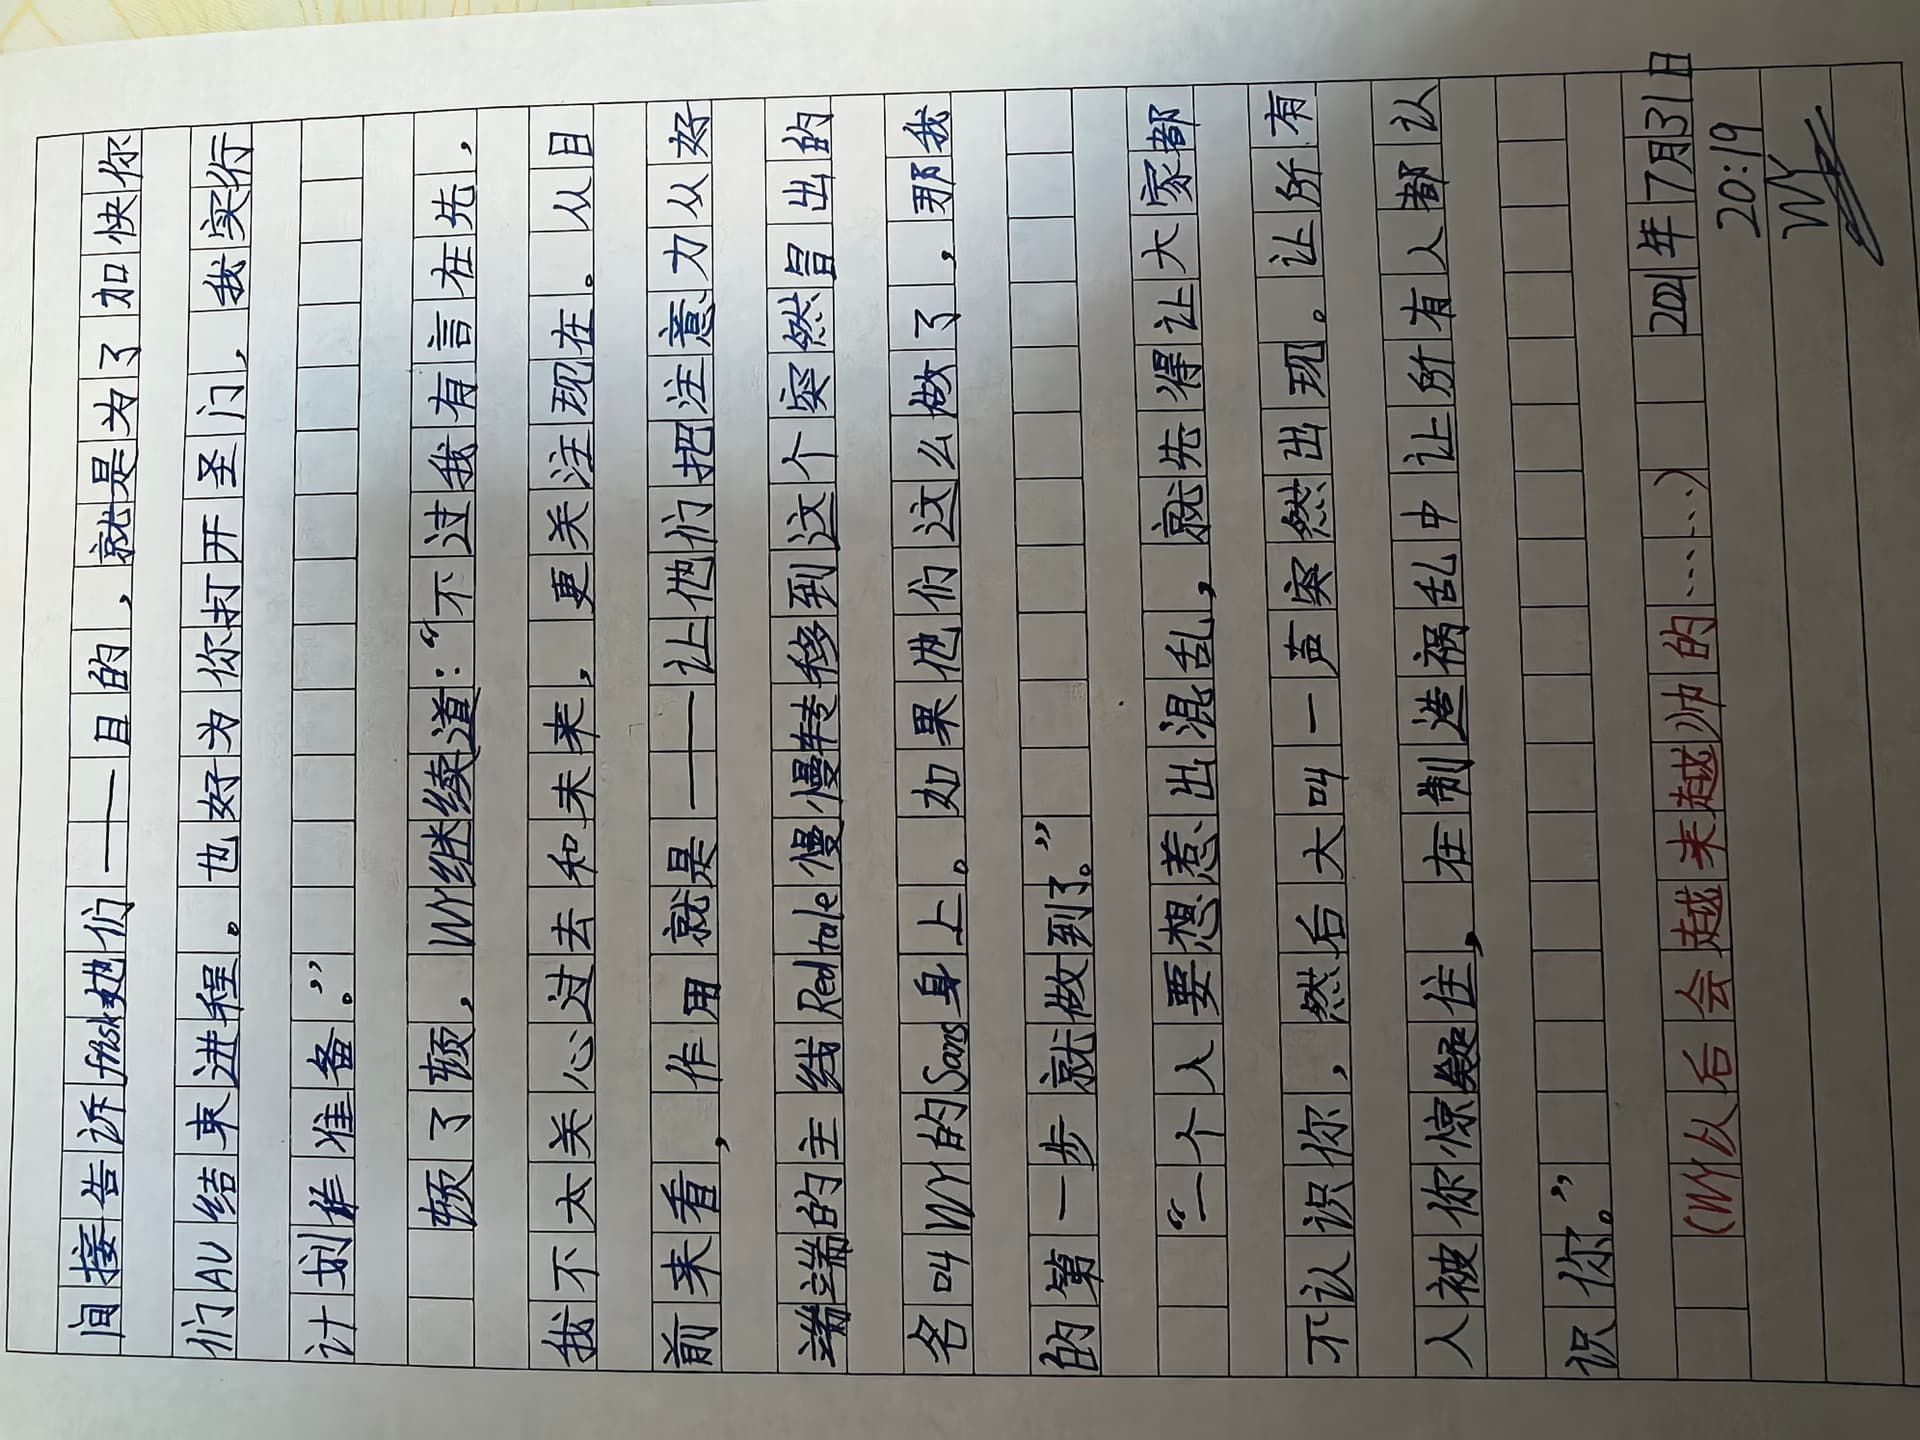 间接告诉frisk他们——目的，就是为了加快你
们AU结束进程。也好为你打开圣门，我实行
计划作准备。”
顿了顿，WY继续道：“不过我有言在先，
我不太关心过去和未来，更关注现在。从目
前来看，作用就是——让他们把注意力从好
端端的主线Redtale慢慢转移到这个突然冒出的
名叫WY的Sans身上。如果他们这么做了，那我
的第一步就做到了。”
“一个人要想惹出混乱，就先得让大家都
不认识你，然后大叫一声突然出现。让所有
人被你惊疑住，在制造祸乱中让所有人都认
识你。”
(WY以后会越来越帅的……) 2021年7月31日
20:19
WY